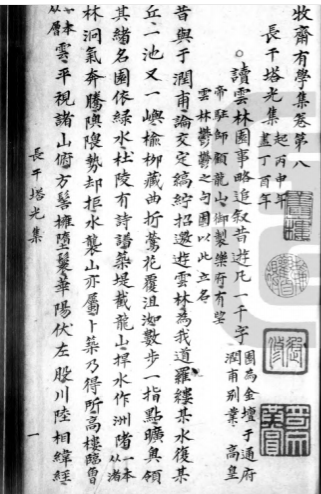 牧齋有學集卷第八
長干塔光集 起丙申年 盡丁酉年
○讀雲林園事略追叙昔遊凡一千字 園為金壇于通府 潤甫别業高皇
帝駐師顧龍山御製樂府有望
雲林鬱鬱之句園以此立名
昔與于潤甫論交定縞紵招邀遊雲林為我道羅縷某水復某
丘一池又一嶼榆柳藏曲折鶯花覆沮洳數步一指點曠奥領
其緒名園依綠水杜陵有詩譜築堤截龍山捍水作洲陼 一本从渚
林洞氣奔騰隩隄勢却拒水襲山亦屬卜築乃得所高樓臨曾
一本从層 雲平視諸山俯方髻擁墮鬟華陽伏左股川陸相緯經
長干塔光集
一